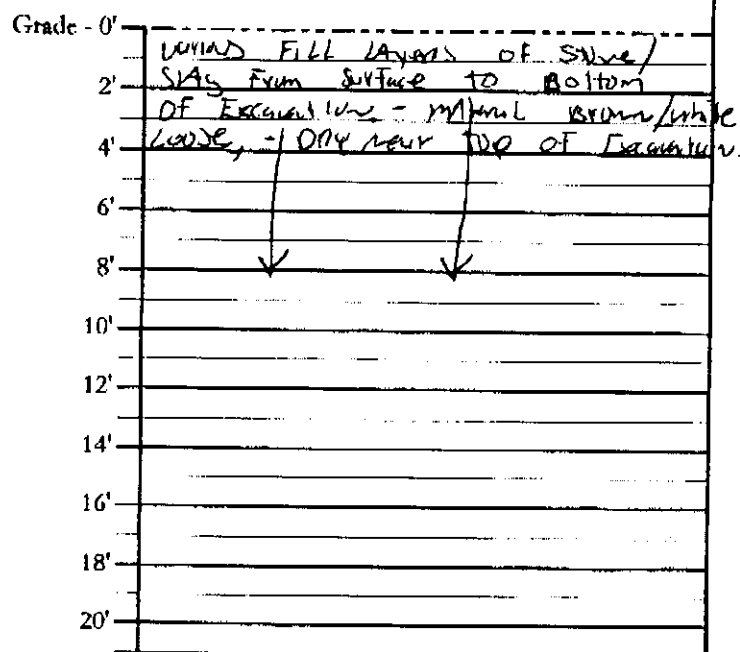 Grade - 0'
FILL LAYERS OF Stone/
2'
SlAg From Surface to Bottom
OF Excavation - Material Brown/white
4'
Loose, - Dry near Top OF Excavation.
6'
8'
10'
12'
14'
16'
18'
20'